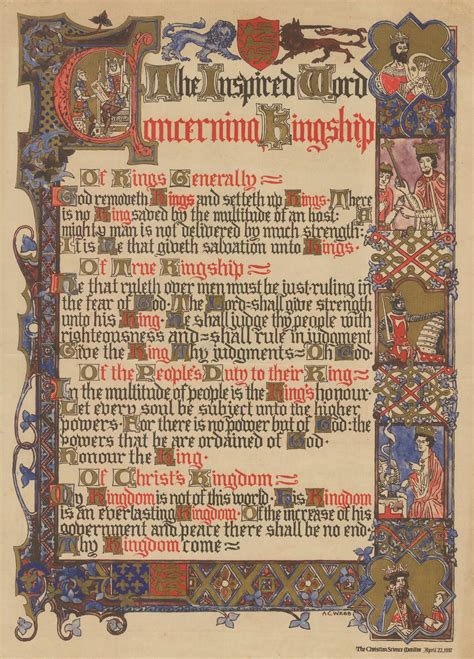 The Inspired Word
Concerning Kingship
Of Kings Generally
God removeth Kings and setteth up Kings. There
is no King saved by the multitude of an host: A
mighty man is not delivered by much strength:
It is He that giveth salvation unto Kings.
Of True Kingship
He that ruleth over men must be just-ruling in
the fear of God. The Lord shall give strength
unto his King. He shall judge thy people with
righteousness and shall rule in judgment
Give the King Thy judgments Oh God
Of the People's Duty to their King
In the multitude of people is the King's honour
Let every soul be subject unto the higher
powers. For there is no power but of God: the
powers that be are ordained of God.
Honour the King.
Of Christ's Kingdom
My Kingdom is not of this world. His Kingdom
is an everlasting Kingdom. Of the increase of his
government and peace there shall be no end.
Thy Kingdom come
A.C. WEBB
The Christian Science Monitor April 22, 1937